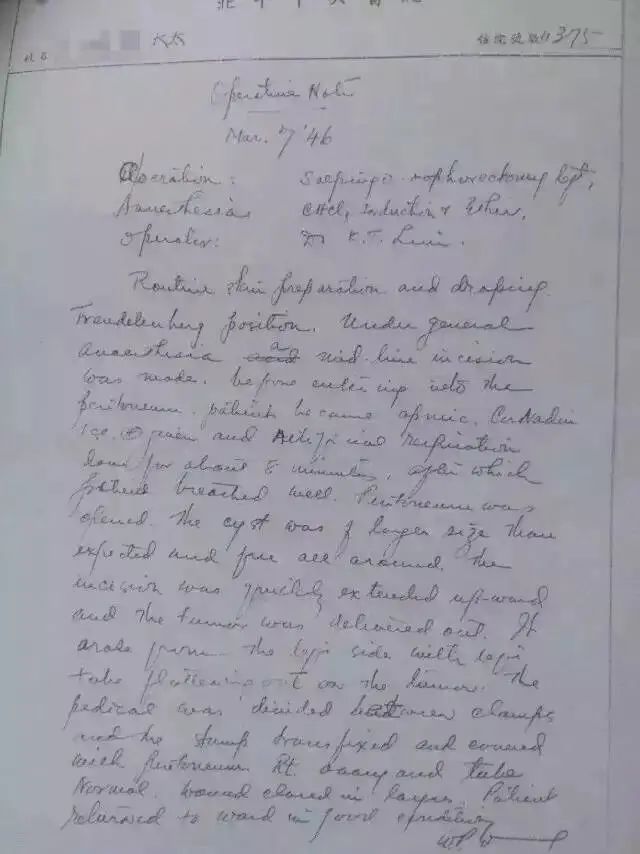 太太 住院號數 11375
Operative Note
Mar. 7 '46
Operation: Salpingo-oophorectomy left,
Anaesthesia CHCl3 induction & Ether.
Operator: Dr K.T. Lim.
Routine skin preparation and draping.
Trendelenberg position. Under general
anaesthesia a mid-line incision
was made. before entering into the
peritoneum, patient became apnoic.
1cc. given and Artificial respiration
done for about 8 minutes, after which
patient breathed well. Peritoneum was
opened. The cyst was of larger size than
expected and free all around. The
incision was quickly extended upward
and the tumor was delivered out. It
arose from the left side with left
tube flattening out on the tumor. The
pedical was divided between clamps
and the stump transfixed and covered
with peritoneum. Rt. ovary and tube
Normal. Wound closed in layers. Patient
returned to ward in good condition